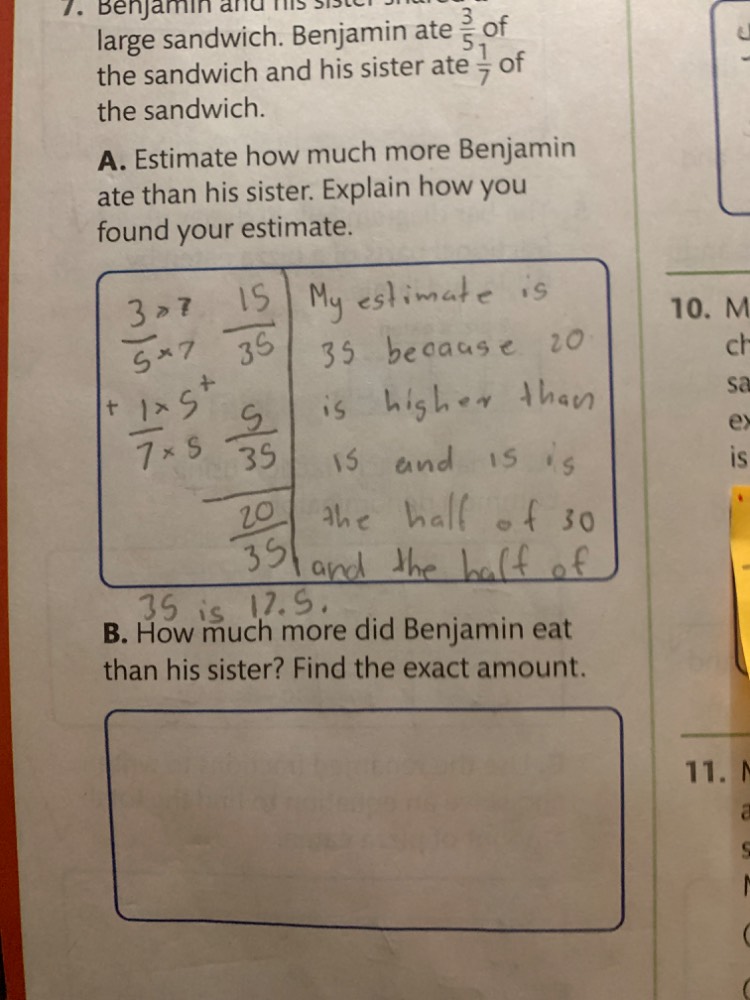 7. Benjamin and his sister shared a
large sandwich. Benjamin ate 3/5 of
the sandwich and his sister ate 1/7 of
the sandwich.
A. Estimate how much more Benjamin
ate than his sister. Explain how you
found your estimate.
3 × 7 / 5 × 7 15/35
+ 1 × 5 / 7 × 5 + 5/35
20/35
My estimate is
35 because 20
is higher than
15 and 15 is
the half of 30
and the half of
35 is 17.5.
B. How much more did Benjamin eat
than his sister? Find the exact amount.
10. M
ch
sa
ex
is
11.